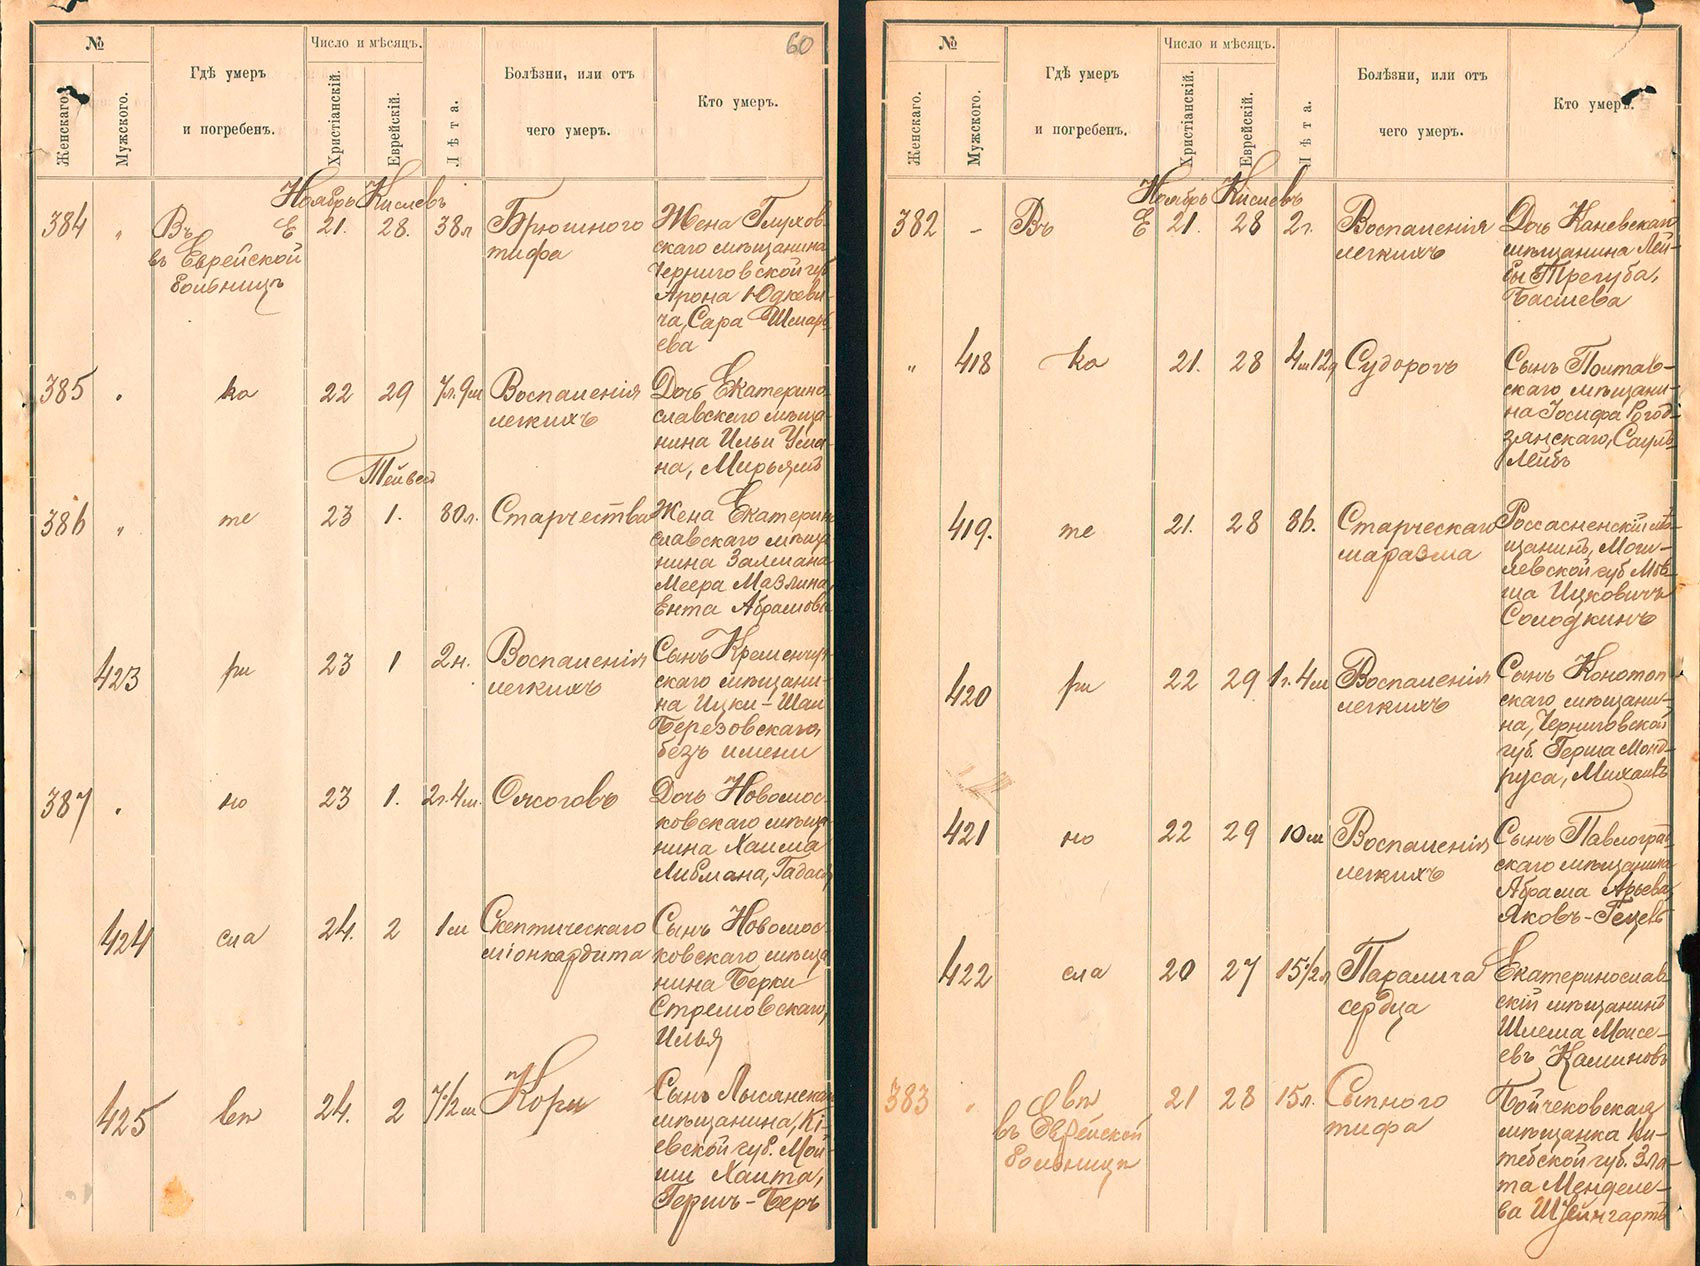 60
№
Женскаго.
Мужского.
Гдѣ умеръ
и погребенъ.
Число и мѣсяцъ.
Христіанскій.
Еврейскій.
Лѣта.
Болѣзни, или отъ
чего умеръ.
Кто умеръ.
Ноябрь Кислевъ
384 " Въ Е 21. 28. 38л Брюшного
тифа
въ Еврейской
больницѣ
Жена Глухов-
скаго мѣщанина
Черниговской губ
Арона Юдкеви-
ча, Сара Шмарь-
ева
385 " ка 22 29 7л.9м Воспаленія
легкихъ
Дочь Екатерино
славскаго мѣща-
нина Ильи Ума-
на, Мирьямъ
Тейвесъ
386 " те 23 1. 80л. Старчества
Жена Екатерино
славскаго мѣща
нина Залмана
Меера Мазлина,
Ента Абрамова
423 ри 23 1 2н. Воспаленія
легкихъ
Сынъ Кременчуг-
скаго мѣщани-
на Ицки-Шаи
Березовскаго,
безъ имени
387 " но 23 1. 2г.4м. Ожоговъ
Дочь Новомос-
ковскаго мѣща-
нина Хаима
Либмана, Гадася
424 сла 24. 2 1м Скептическаго
міонкардита
Сынъ Новомос-
ковскаго мѣща
нина Берки
Стремовскаго,
Илья
425 вѣ 24. 2 7½м Кори
Сынъ Лысянскаго
мѣщанина, Кі-
евской губ. Мой-
ши Хаита,
Гершъ-Беръ
№
Женскаго.
Мужского.
Гдѣ умеръ
и погребенъ.
Число и мѣсяцъ.
Христіанскій.
Еврейскій.
Лѣта.
Болѣзни, или отъ
чего умеръ.
Кто умеръ.
Ноябрь Кислевъ
382 - Въ Е 21. 28 2г. Воспаленія
легкихъ
Дочь Каневскаго
мѣщанина Лей-
бы Трегуба,
Басшева
" 418 ка 21. 28 4м12д Судорогъ
Сынъ Полтав-
скаго мѣщани-
на Іосифа Рогод-
зянскаго, Сауль-
Лейбъ
419. те 21. 28 86. Старческаго
маразма
Россасненскій мѣ-
щанинъ, Моги-
левской губ Мов-
ша Ицковичъ
Солодкинъ
420 ри 22 29 1г.4м Воспаленія
легкихъ
Сынъ Конотоп-
скаго мѣщани-
на, Черниговской
губ. Герша Монд-
руса, Михаилъ
421 но 22 29 10м Воспаленія
легкихъ
Сынъ Павлоград-
скаго мѣщанина
Абрама Арьева,
Яковъ-Гецель
422 сла 20 27 15½л Паралича
сердца
Екатеринослав-
скій мѣщанинъ
Шлема Моисе-
евъ Каминовъ
383 " вѣ 21 28 15л. Сыпного
тифа
въ Еврейской
больницѣ
Бойчековская
мѣщанка Ви-
тебской губ. Зла-
та Менделе-
ва Швейнгартъ